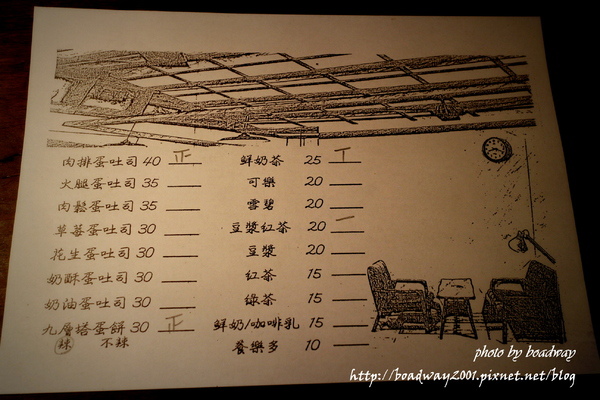 肉排蛋吐司 40 正 鮮奶茶 25 丅
火腿蛋吐司 35 可樂 20
肉鬆蛋吐司 35 雪碧 20
草莓蛋吐司 30 豆漿紅茶 20 一
花生蛋吐司 30 豆漿 20
奶酥蛋吐司 30 紅茶 15
奶油蛋吐司 30 綠茶 15
九層塔蛋餅 30 正 鮮奶/咖啡乳 15
辣 不辣 養樂多 10
photo by boadway
http://boadway2001.pixnet.net/blog